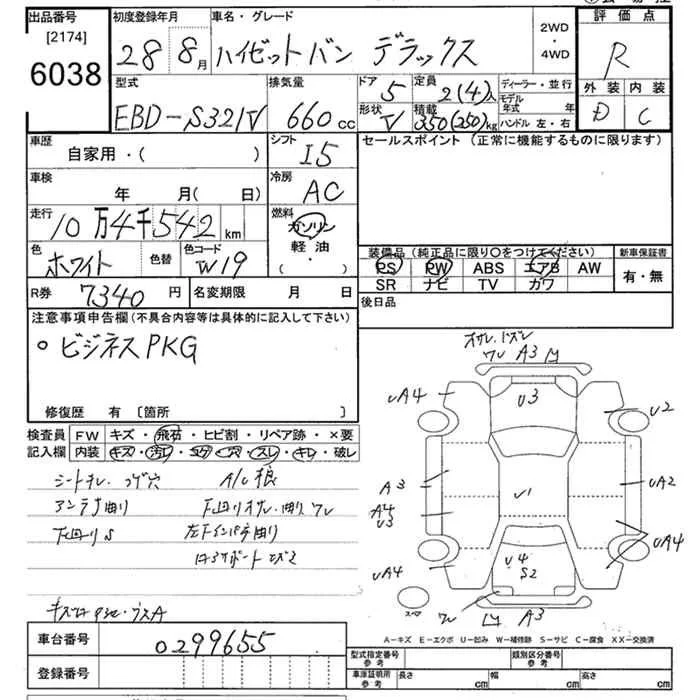 出品番号
[2174]
6038
初度登録年月
28 8月
車名・グレード
ハイゼットバン デラックス
2WD
・
4WD
評価点
R
外装 内装
D C
型式
EBD-S321V
排気量
660cc
ドア 5
定員 2(4)人
形状 V
積載 350(250)kg
ディーラー・並行
モデル年式 年
ハンドル 左・右
車歴
自家用・( )
シフト
I5
セールスポイント(正常に機能するものに限ります)
車検
年 月( 日)
冷房
AC
走行
10万4千542km
燃料
ガソリン
軽油
・
( )
色
ホワイト
色替
色コード
W19
装備品(純正品に限り○をつけてください)
PS PW ABS エアB AW
SR ナビ TV カワ
新車保証書
有・無
R券 7340円
名変期限 月 日
後日品
注意事項申告欄(不具合内容等は具体的に記入して下さい)
○ ビジネスPKG
修復歴 有 [箇所 ]
検査員記入欄
FW キズ・飛石・ヒビ割・リペア跡・×要
内装 キズ・汚レ・コゲ・穴・スレ・キレ・破レ
シートキレ・コゲ穴 A/C
アンテナ曲り
下回りS
A3
UA4
U3
U2
A3
U1
UA2
A4
U3
UA4
U4
S2
UA4
A3
スペア
A-キズ E-エクボ U-凹み W-補修跡 S-サビ C-腐食 XX-交換済
車台番号
0299655
登録番号
型式指定番号
参考
類別区分番号
参考
車庫証明所
参考
長さ cm
幅 cm
高さ cm